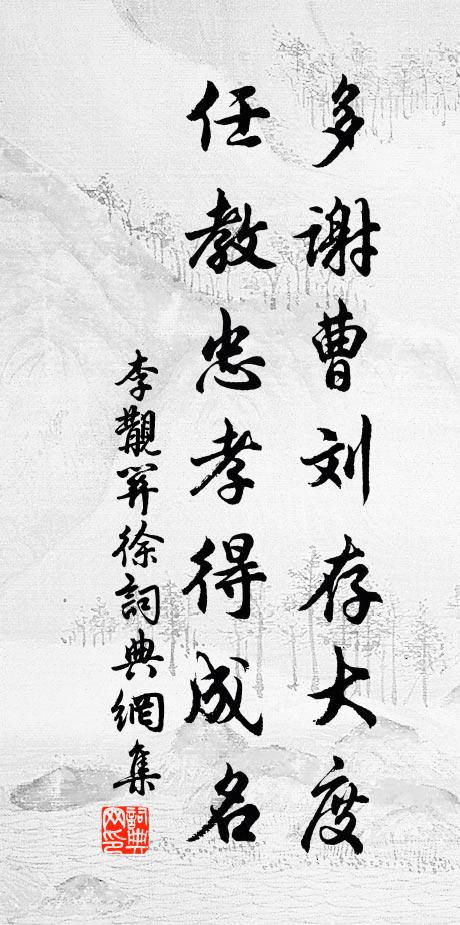 多謝曹刘存大度
任教忠孝得成名
李覯徐詞典網集
詞典网印